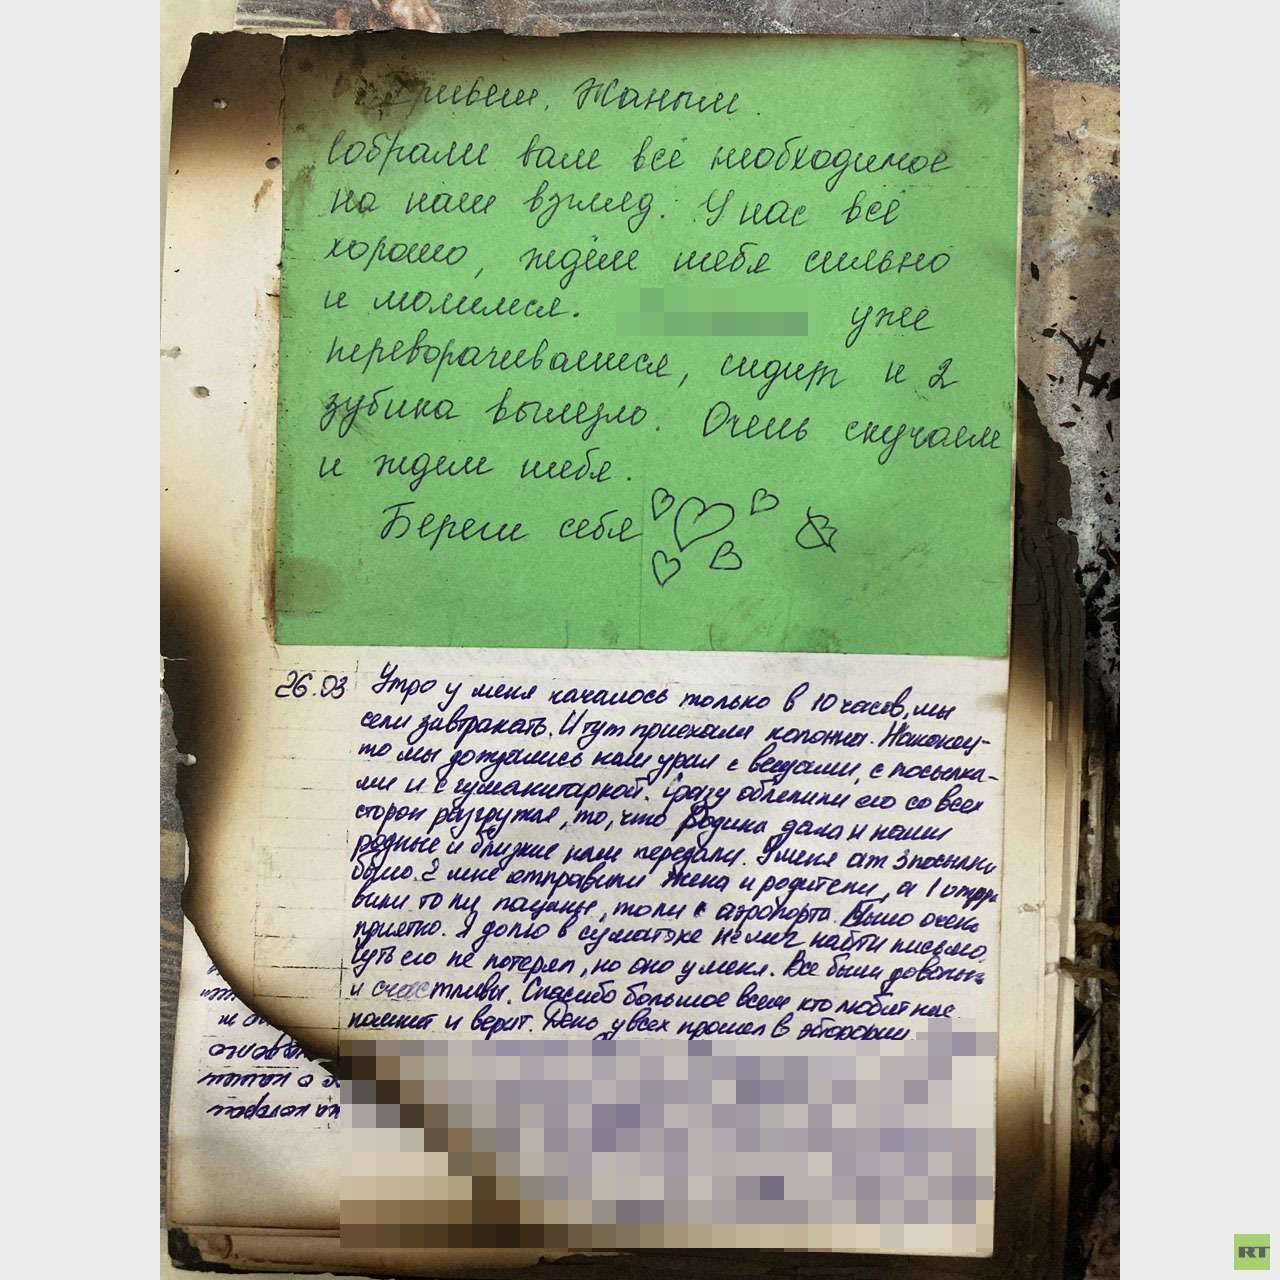 Привет, Жаным.
Собрали вам всё необходимое
на наш взгляд. У нас всё
хорошо, ждём тебя сильно
и молимся. уже
переворачивается, сидит и 2
зубика вылезло. Очень скучаем
и ждем тебя.
Береги себя
26.03 Утро у меня началось только в 10 часов, мы
сели завтракать. И тут приехали колонна. Наконец-
то мы дождались наш урал с вещами, с посылка-
ми и с гуманитаркой. Сразу облепили его со всех
сторон разгружая, то, что Родина дала и наши
родные и близкие нам передали. У меня аж 3 посылки
было. 2 мне отправили жена и родители, а 1 отпра
вили то ли пацаны, то ли с аэропорта. Было очень
приятно. Я долго в суматохе не мог найти письмо,
чуть его не потерял, но оно у меня. Все были довольны
и счастливы. Спасибо большое всем кто любит нас
помнит и верит. День у всех прошел в эйфории.
RT